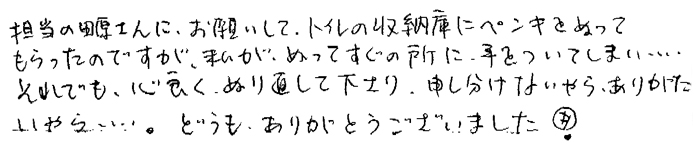 担当の田原さんに、お願いして、トイレの収納庫にペンキをぬって
もらったのですが、私が、ぬってすぐの所に、手をついてしまい‥‥
それでも、心良く、ぬり直して下さり、申し分けないやら、ありがた
いやら‥‥。どうも、ありがとうございました